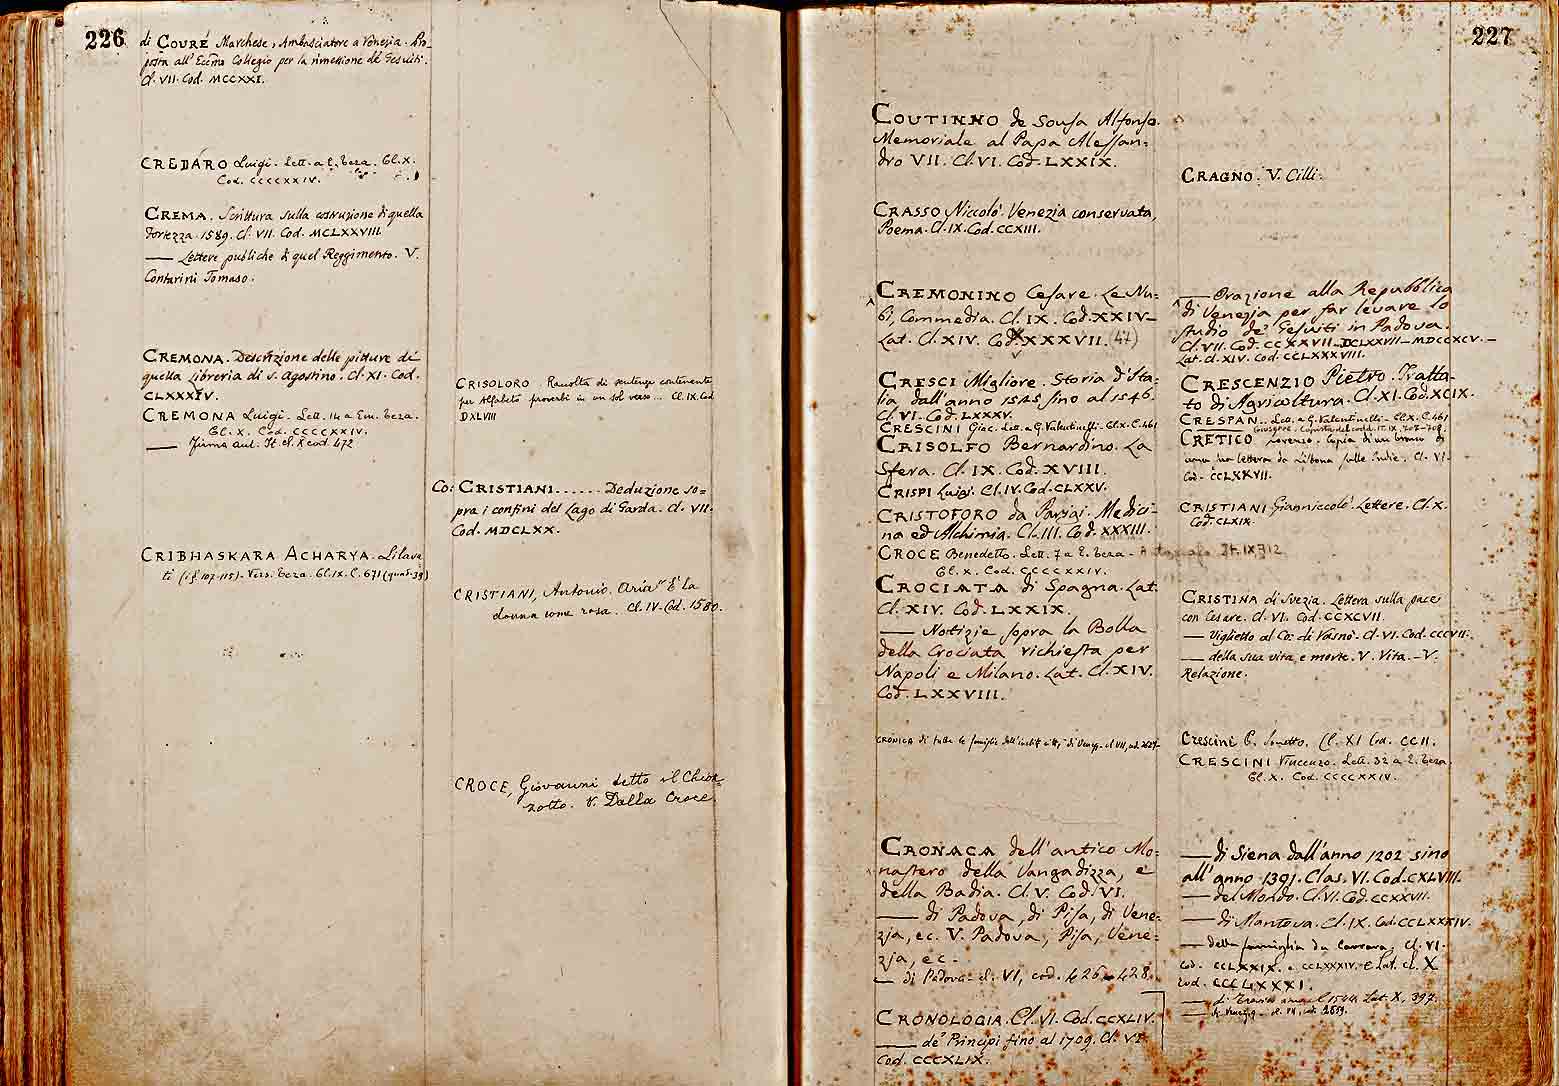 226
di COURÉ Marchese, Ambasciatore a Venezia. Pro_
posta all' Eccmo Collegio per la rimessione de' Gesuiti.
Cl. VII. Cod. MCCXXI.
CREDARO Luigi. Lett. a E. Teza. Cl. X.
Cod. CCCCXXIV.
CREMA. Scrittura sulla costruzione di quella
Fortezza 1589. Cl. VII. Cod. MCLXXVIII.
— Lettere pubbliche di quel Reggimento. V.
Contarini Tomaso.
CREMONA. Descrizione delle pitture di
quella Libreria di S. Agostino. Cl. XI. Cod.
CLXXXIV.
CREMONA Luigi. Lett. 14 a Em. Teza.
Cl. X. Cod. CCCCXXIV.
— Firma aut. It. cl. X cod. 472
CRIBHASKARA ACHARYA. Lilava
ti (cf 107-115). Vers. Teza. Cl. IX. C. 671 (quad. 39)
CRISOLORO. Raccolta di sentenze contenente
per Alfabeto proverbi in un sol verso... Cl. IX. Cod.
DXLVIII
Co: CRISTIANI ...... Deduzione so=
pra i confini del Lago di Garda. Cl. VII.
Cod. MDCLXX.
CRISTIANI, Antonio. Aria "È la
donna come rosa. Cl. IV - Cod. 1580.
CROCE, Giovanni detto il Chioz=
zotto. V. Dalla Croce.
227
COUTINHO de Sousa Alfonso.
Memoriale al Papa Alessan=
dro VII. Cl. VI. Cod. LXXIX.
CRASSO Niccolò. Venezia conservata,
Poema. Cl. IX. Cod. CCXIII.
CREMONINO Cesare. Le Nu=
bi, Commedia. Cl. IX. Cod. XXIV_
Lat. Cl. XIV. Cod. XXXVII. (47)
CRESCI Migliore. Storia d'Ita=
lia dall'anno 1525 sino al 1546.
Cl. VI. Cod. LXXXV.
CRESCINI Giac. Lett. a G. Valentinelli. Cl. X. C. 461
CRISOLFO Bernardino. La
Sfera. Cl. IX. Cod. XVIII.
CRISPI Luigi. Cl. IV. Cod. CLXXV.
CRISTOFORO da Parigi. Medici=
na ed Alchimia. Cl. III. Cod. XXXIII.
CROCE Benedetto. Lett. 7 a E. Teza. Autografo It. IX 712
Cl. X. Cod. CCCCXXIV.
CROCIATA di Spagna. Lat.
Cl. XIV. Cod. LXXIX.
— Notizie sopra la Bolla
della Crociata richiesta per
Napoli e Milano. Lat. Cl. XIV.
Cod. LXXVIII.
CRONICA di tutte le famiglie dell' di Venez. cl. VII, cod.
CRONACA dell'antico Mo=
nastero della Vangadizza, e
della Badia. Cl. V. Cod. VI.
— di Padova, di Pisa, di Vene=
zia, ec. V. Padova, Pisa, Vene=
zia, ec.
— di Padova cl. VI, cod. 426 - 428.
CRONOLOGIA. Cl. VI. Cod. CCXLIV.
— de' Principi fino al 1709. Cl. VI.
Cod. CCCXLIX.
CRAGNO. V. Cilli.
— Orazione alla Repubblica
di Venezia per far levare lo
studio de' Gesuiti in Padova.
Cl. VII. Cod. CCXXVII_DCLXXVII_MDCCXCV._
Lat. cl. XIV. Cod. CCLXXXVIII.
CRESCENZIO Pietro. Tratta=
to di Agricoltura. Cl. XI. Cod. XCIX.
CRESPAN.. Lett. a G. Valentinelli. Cl. X. C. 461
— Giuseppe. Copista dei codd. It. IX, 707-708.
CRETICO Lorenzo. Copia di un
una lettera da Lisbona sulle Indie. Cl. VI.
Cod. CCLXXVII.
CRISTIANI Gianniccolò. Lettere. Cl. X.
Cod. CLIX.
CRISTINA di Svezia. Lettera sulla pace
con Cesare. Cl. VI. Cod. CCXCVII.
— Viglietto al Co: di Vasnò. Cl. VI. Cod. CCCVII.
— della sua vita, e morte. V. Vita. _ V.
Relazione.
Crescini G. Sonetto. Cl. XI Cod. CCII.
CRESCINI Vincenzo. Lett. 32 a E. Teza.
Cl. X. Cod. CCCCXXIV.
— di Siena dall'anno 1202 sino
all'anno 1391. Clas. VI. Cod. CXLVIII.
— del Mondo. Cl. VI. Cod. CCXXVII.
— di Mantova. Cl. IX. Cod. CCLXXXIV.
— della famiglia da Carrara. Cl. VI.
Cod. CCLXXIX. e CCLXXXIV. e Lat. Cl. X
Cod. CCCLXXXI.
— di Lat. X, 397.
— di Venezia